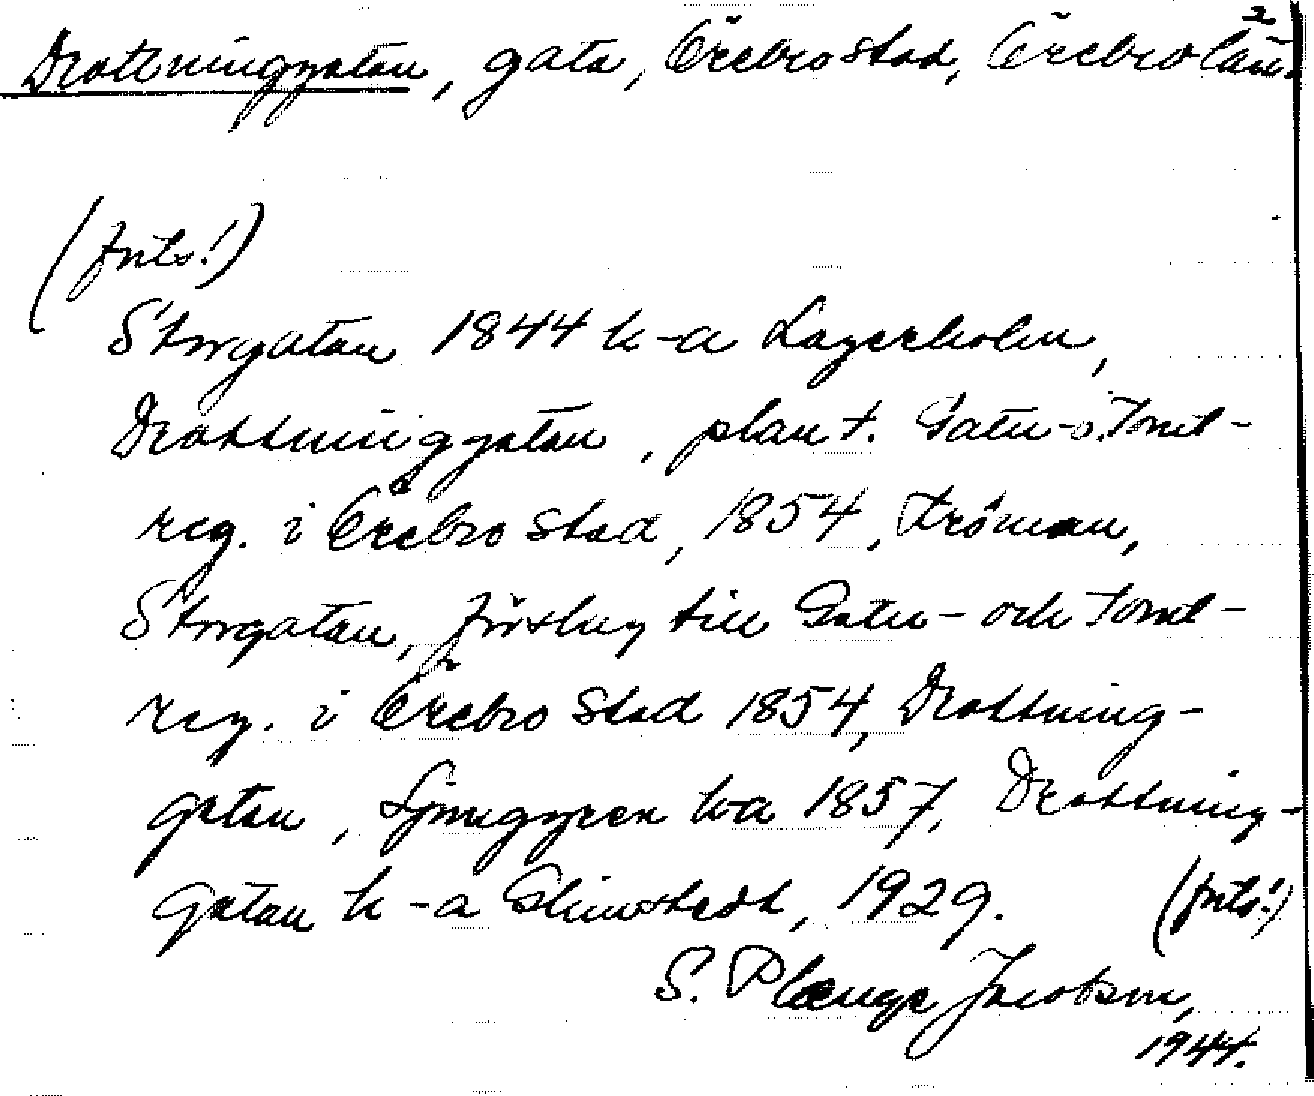 2
Drottninggatan, gata, Örebro stad, Örebro län.
(forts!)
Storgatan 1844 k-a Lagerholm,
Drottninggatan, plan t. Gatu- o. Tomt-
reg. i Örebro stad, 1854, Ströman,
Storgatan, förslag till Gatu- och Tomt-
reg. i Örebro Stad 1854, Drottning-
gatan, Ljunggren k-a 1857, Drottning-
gatan k-a 1929. (forts!)
S. Plænge Jacobson,
1944.